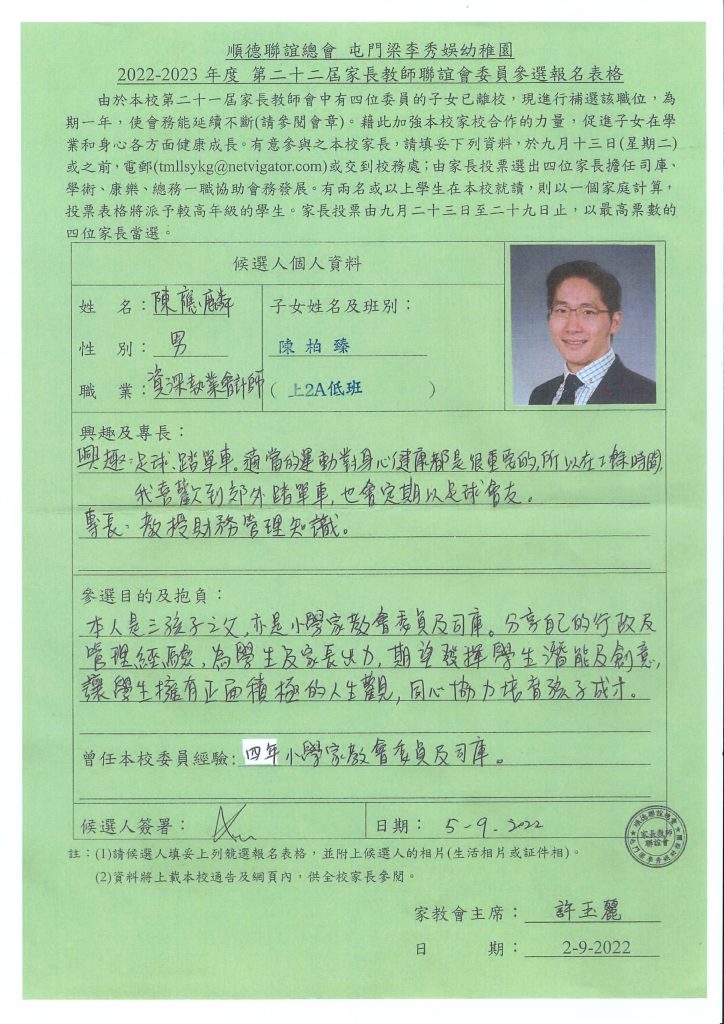 順德聯誼總會 屯門梁李秀娛幼稚園
2022-2023 年度 第二十二屆家長教師聯誼會委員參選報名表格
由於本校第二十一屆家長教師會中有四位委員的子女已離校，現進行補選該職位，為
期一年，使會務能延續不斷(請參閱會章)。藉此加強本校家校合作的力量，促進子女在學
業和身心各方面健康成長。有意參與之本校家長，請填妥下列資料，於九月十三日(星期二)
或之前，電郵(tmllsykg@netvigator.com)或交到校務處；由家長投票選出四位家長擔任司庫、
學術、康樂、總務一職協助會務發展。有兩名或以上學生在本校就讀，則以一個家庭計算，
投票表格將派予較高年級的學生。家長投票由九月二十三日至二十九日止，以最高票數的
四位家長當選。
候選人個人資料
姓 名：陳應麟 子女姓名及班別：
性 別：男 陳柏臻
職 業：資深執業會計師 ( 上2A低班 )
興趣及專長：
興趣：足球、踏單車。適當的運動對身心健康都是很重要的，所以在工餘時間，
我喜歡到郊外踏單車，也會定期以足球會友。
專長：教授財務管理知識。
參選目的及抱負：
本人是三孩子之父，亦是小學家教會委員及司庫。分享自己的行政及
管理經驗，為學生及家長出力，期望發揮學生潛能及創意，
讓學生擁有正面積極的人生觀，同心協力培育孩子成才。
曾任本校委員經驗：四年小學家教會委員及司庫。
候選人簽署： 日期： 5-9-2022
順德聯誼總會屯門梁李秀娛幼稚園
家長教師
聯誼會
註：(1)請候選人填妥上列競選報名表格，並附上候選人的相片(生活相片或証件相)。
(2)資料將上載本校通告及網頁內，供全校家長參閱。
家教會主席： 許玉麗
日 期： 2-9-2022